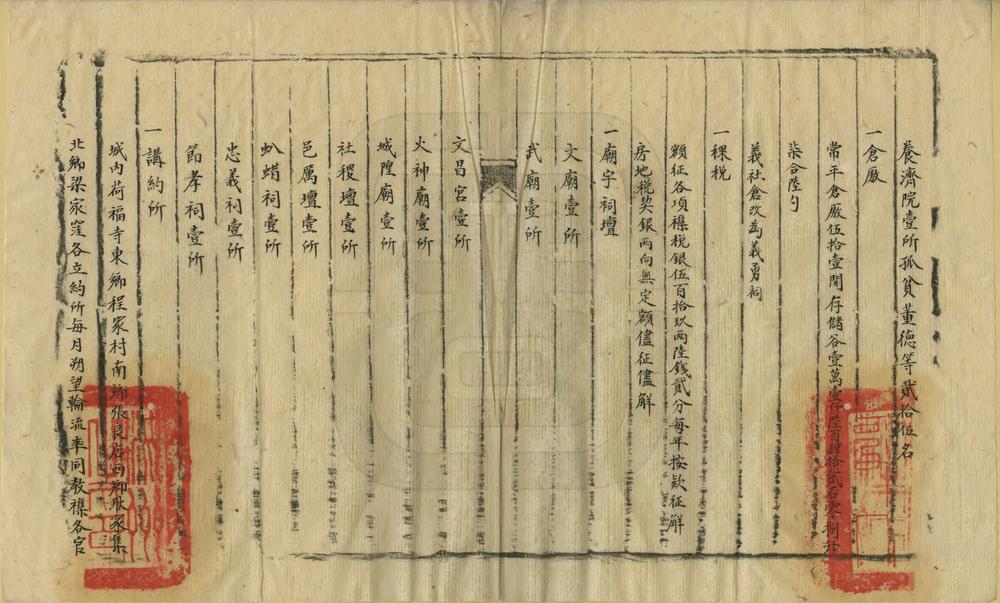 養濟院壹所孤貧董德等貳拾伍名
一倉廒
常平倉廒伍拾壹間存儲谷壹萬壹仟陸百肆拾貳石零捌升
柒合陸勺
義社倉改為義勇祠
一稞税
額征各項襍税銀伍百拾玖兩陸錢貳分每年按欵征解
房地税契銀两向無定額儘征儘解
一廟宇祠壇
文廟壹所
武廟壹所
文昌宮壹所
火神廟壹所
城隍廟壹所
社稷壇壹所
邑厲壇壹所
虲蜡祠壹所
忠義祠壹所
節孝祠壹所
一講約所
城内荷福寺東鄉程家村南鄉張良店西鄉耿家集
北鄉梁家窪各立約所每月朔望輪流率同教襍各官